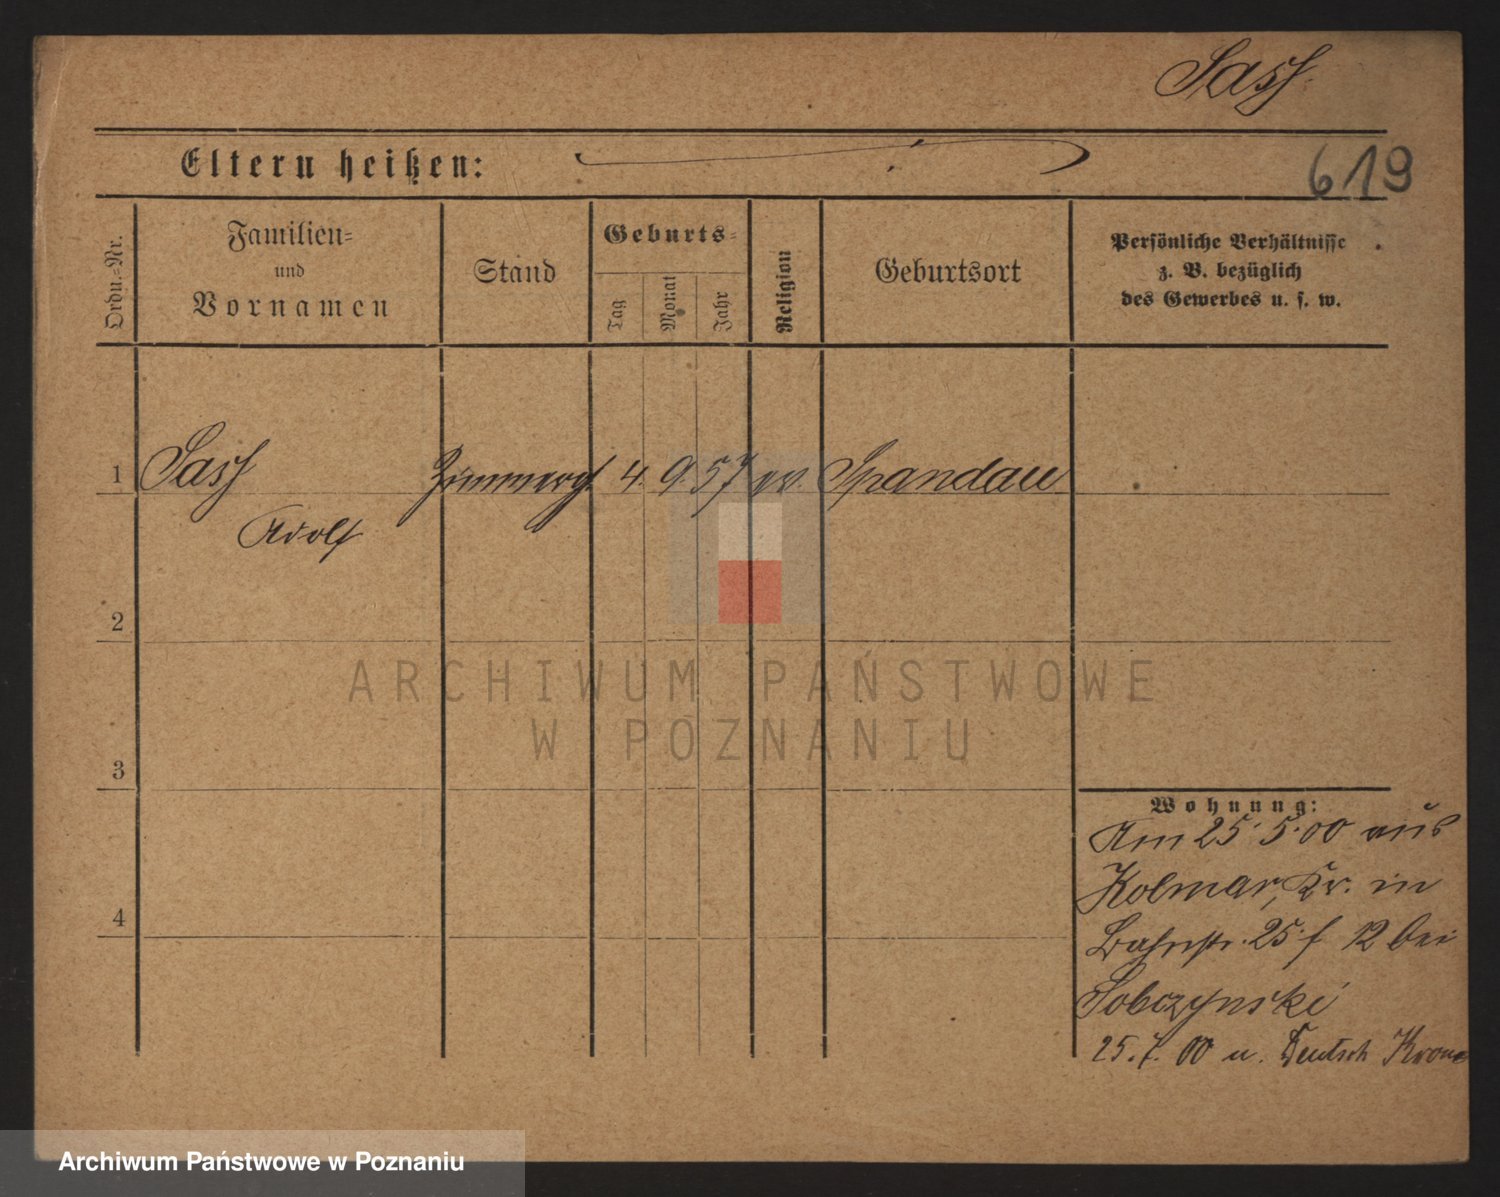 Sass
Eltern heißen:
619
Ordn.=Nr.
Familien=
und
Vornamen
Stand
Geburts=
Tag
Monat
Jahr
Religion
Geburtsort
Persönliche Verhältnisse
z. B. bezüglich
des Gewerbes u. s. w.
1 Sass Zimmerg. 4. 9. 57 ev. Spandau
Adolf
2
3
4
Wohnung:
Am 25. 5. 00 aus
Kolmar, Kr. in
Bahnstr. 25 f 12 bei
Sobczynski
25. 7. 00 n. Deutsch Krone
ARCHIWUM PAŃSTWOWE
W POZNANIU
Archiwum Państwowe w Poznaniu